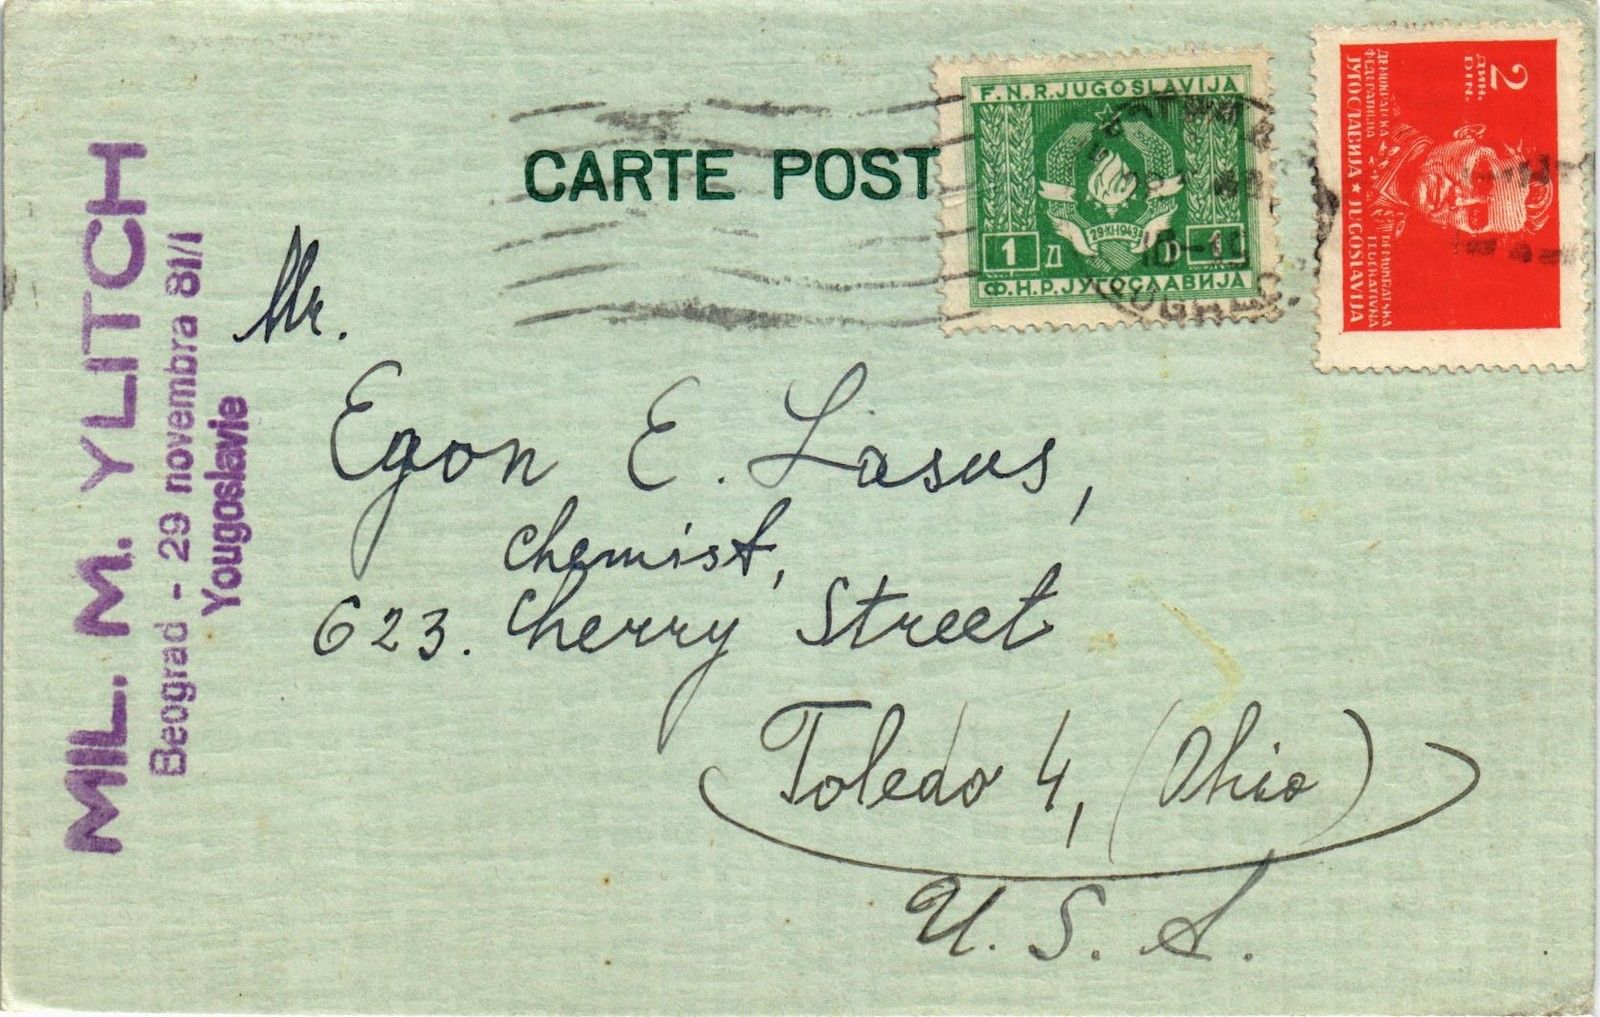 CARTE POST
F.N.R.JUGOSLAVIJA
29·XI·1943
1 Д D 1
Ф.Н.Р.ЈУГОСЛАВИЈА
2
ДИН.
DIN.
ДЕМОКРАТСКА
ФЕДЕРАТИВНА
ЈУГОСЛАВИЈА ★ JUGOSLAVIJA
DEMOKRATSKA
FEDERATIVNA
MIL. M. YLITCH
Beograd - 29 novembra 81/I
Yougoslavie
Mr.
Egon E. Lasus,
Chemist,
623. Cherry Street
Toledo 4, (Ohio)
U. S. A.